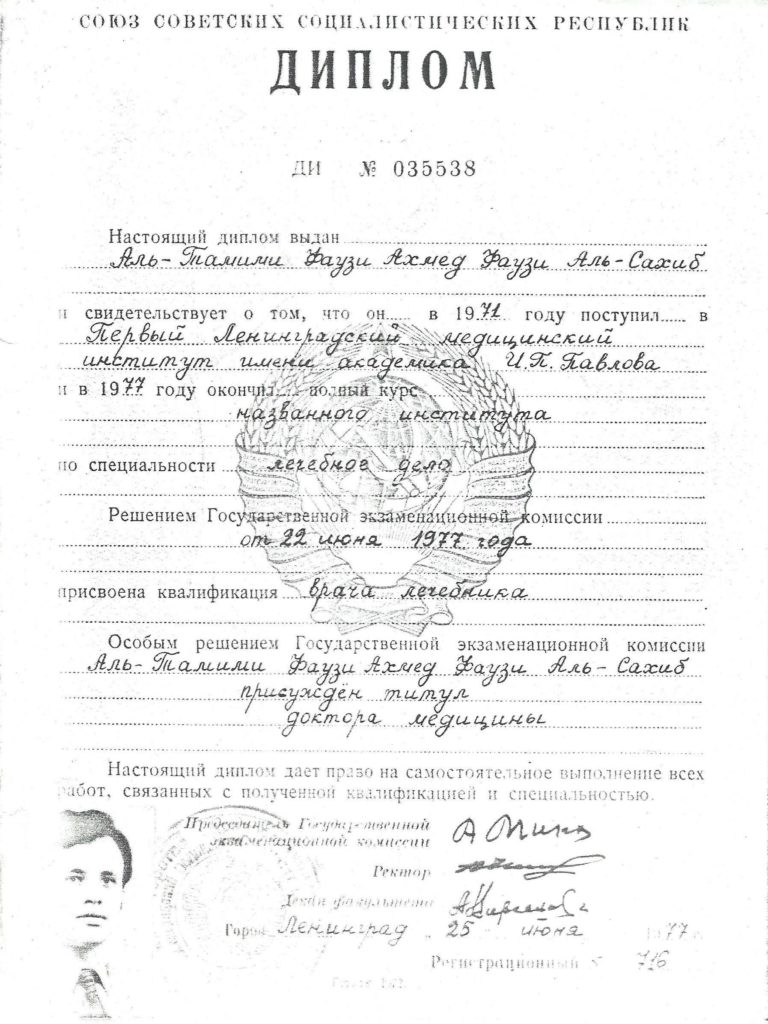 СОЮЗ СОВЕТСКИХ СОЦИАЛИСТИЧЕСКИХ РЕСПУБЛИК
ДИПЛОМ
ДИ № 035538
Настоящий диплом выдан
Аль-Тамими Фаузи Ахмед Фаузи Аль-Сахиб
и свидетельствует о том, что он в 1971 году поступил в
Первый Ленинградский медицинский
институт имени академика И.П. Павлова
и в 1977 году окончил полный курс
названного института
по специальности лечебное дело
Решением Государственной экзаменационной комиссии
от 22 июня 1977 года
присвоена квалификация врача лечебника
Особым решением Государственной экзаменационной комиссии
Аль-Тамими Фаузи Ахмед Фаузи Аль-Сахиб
присуждён титул
доктора медицины
Настоящий диплом дает право на самостоятельное выполнение всех
работ, связанных с полученной квалификацией и специальностью.
Председатель Государственной
экзаменационной комиссии
Ректор
Декан факультета
Город Ленинград 25 июня 1977 г.
Регистрационный № 716